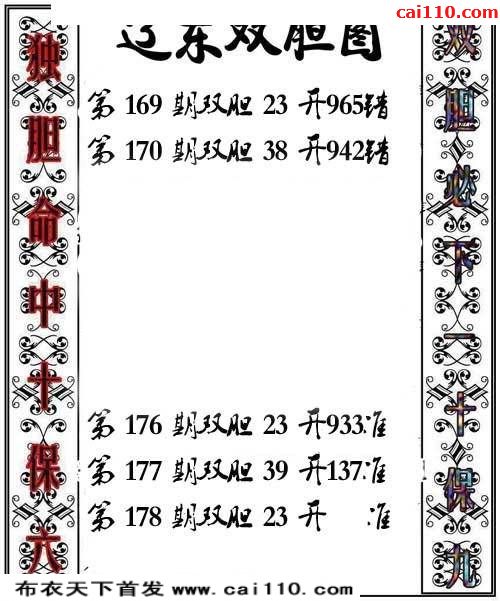 cai110.com
辽东双胆图
第 169 期双胆 23 开965错
第 170 期双胆 38 开942错
第 176 期双胆 23 开933准
第 177 期双胆 39 开137准
第 178 期双胆 23 开 准
独胆命中十保六
双胆必下一十保九
布衣天下首发 www.cai110.com